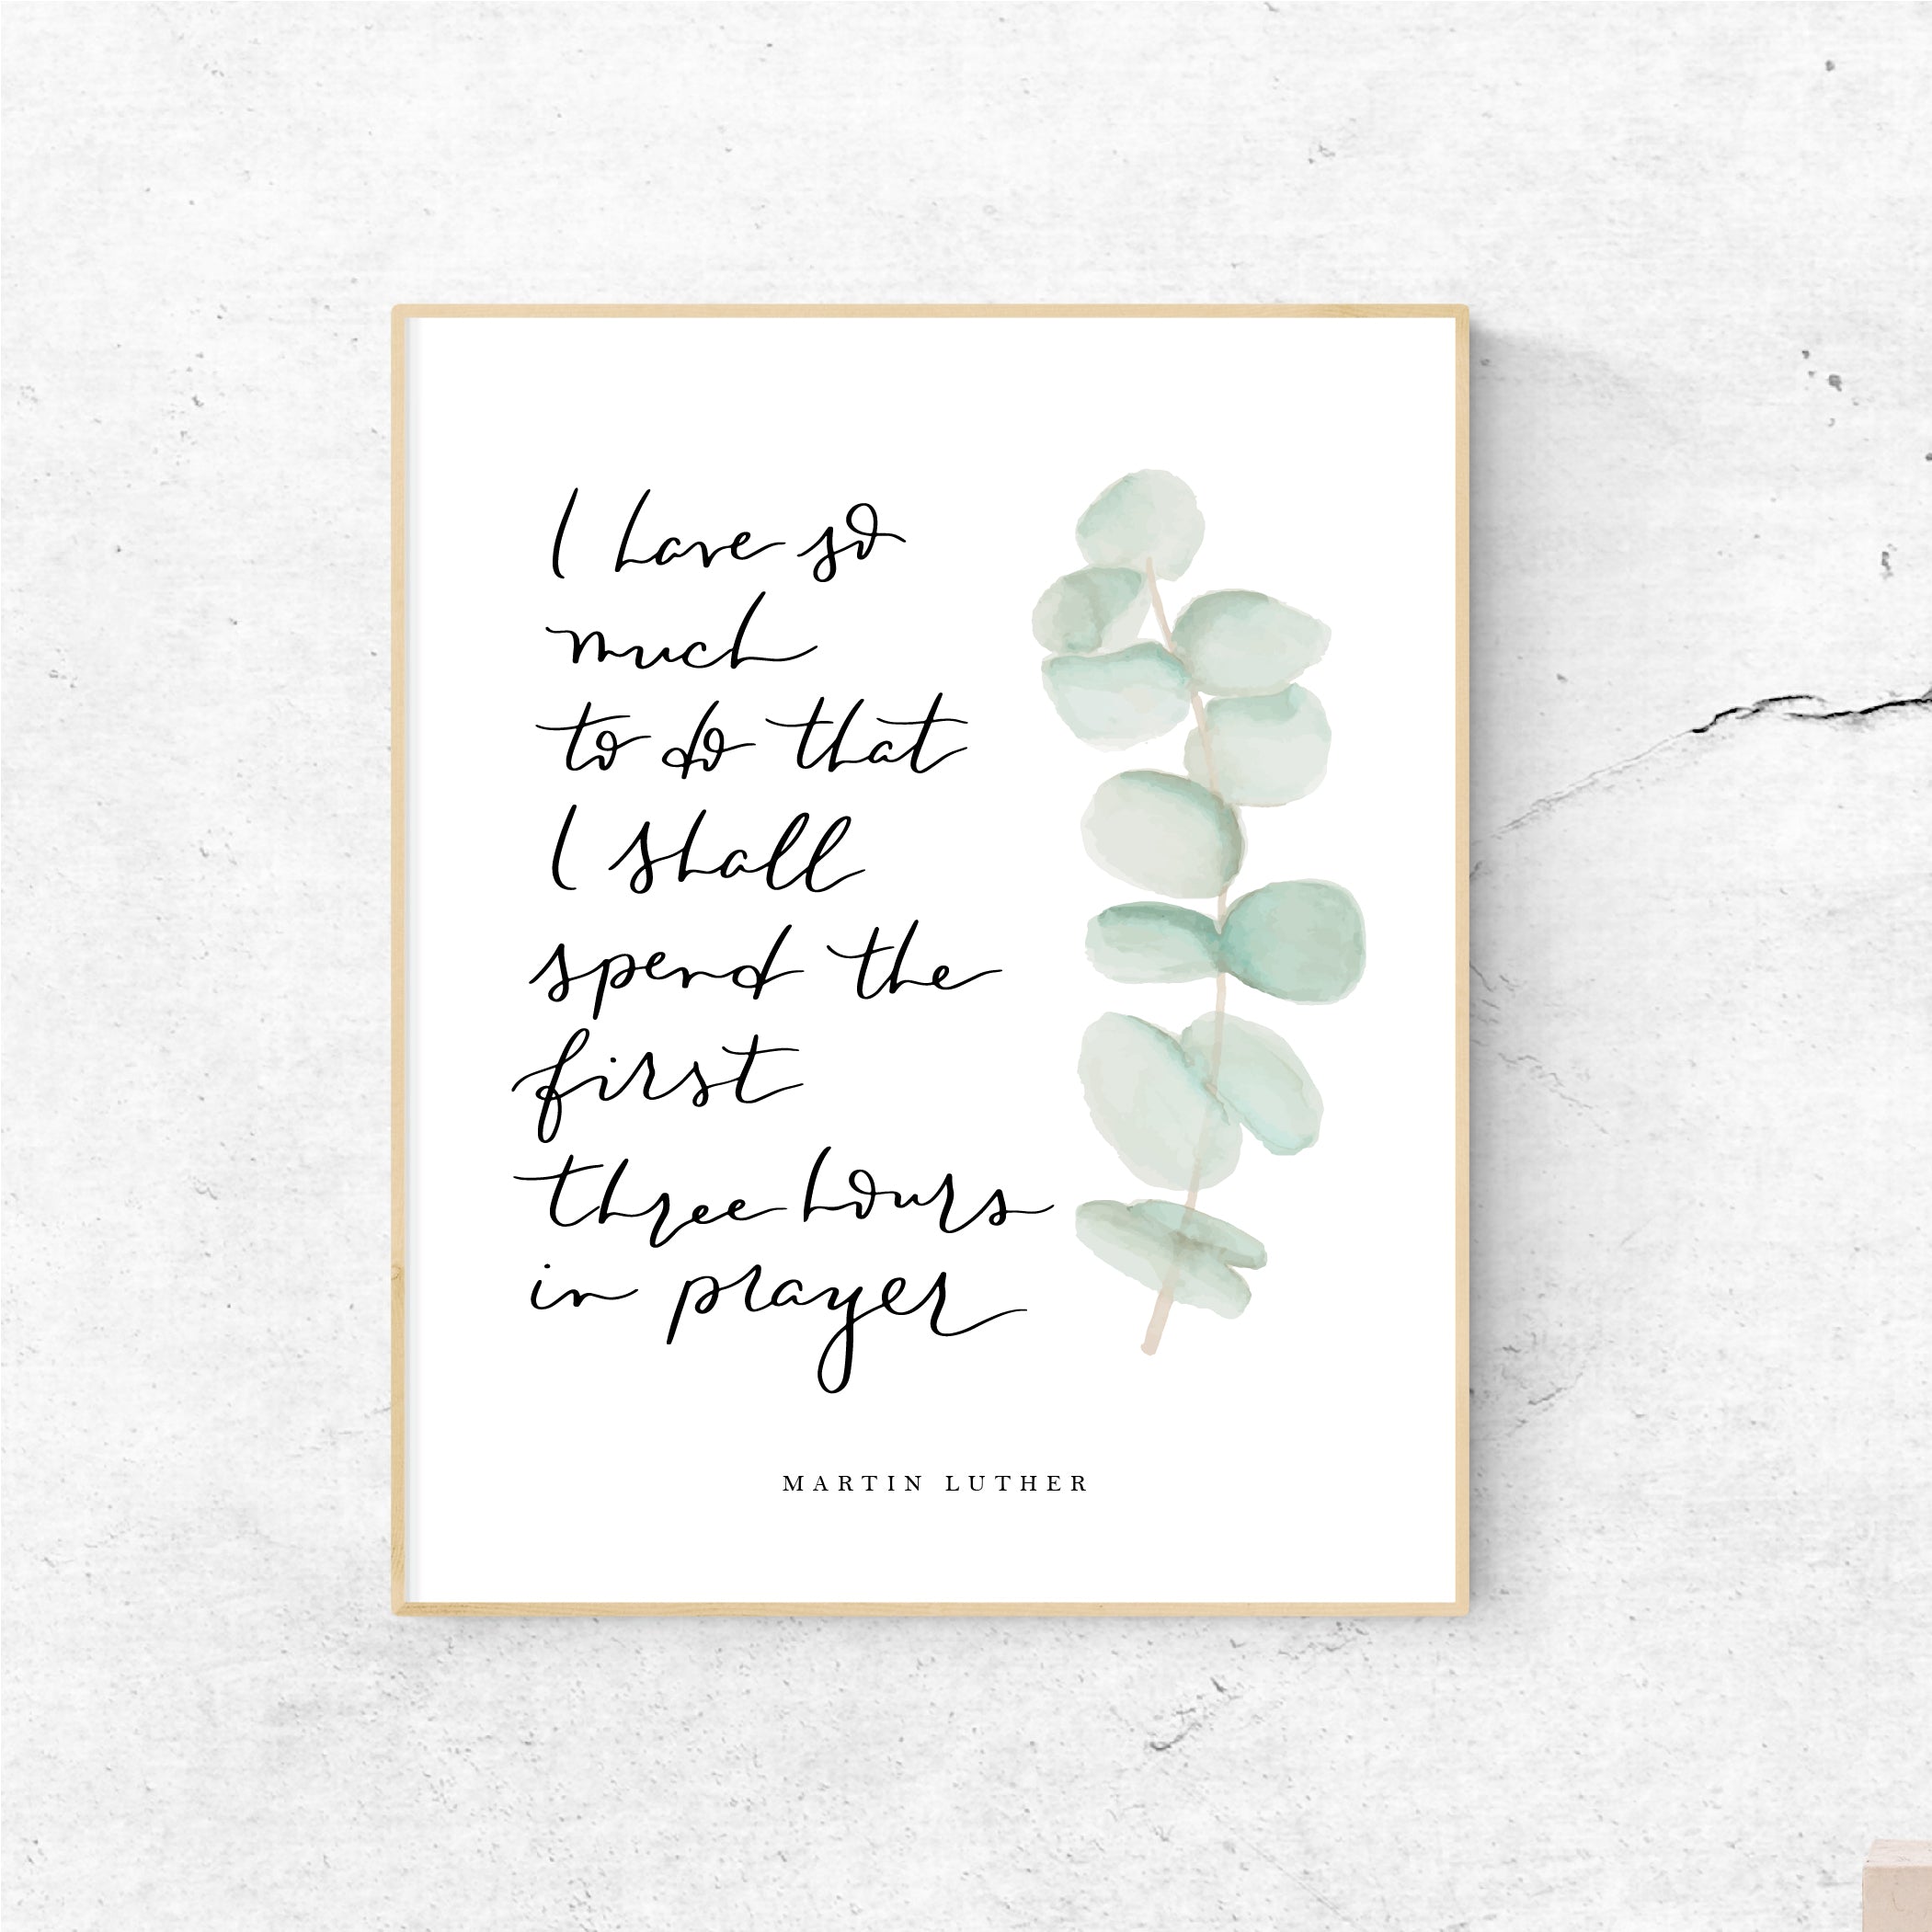 I have so
much
to do that
I shall
spend the
first
three hours
in prayer
MARTIN LUTHER